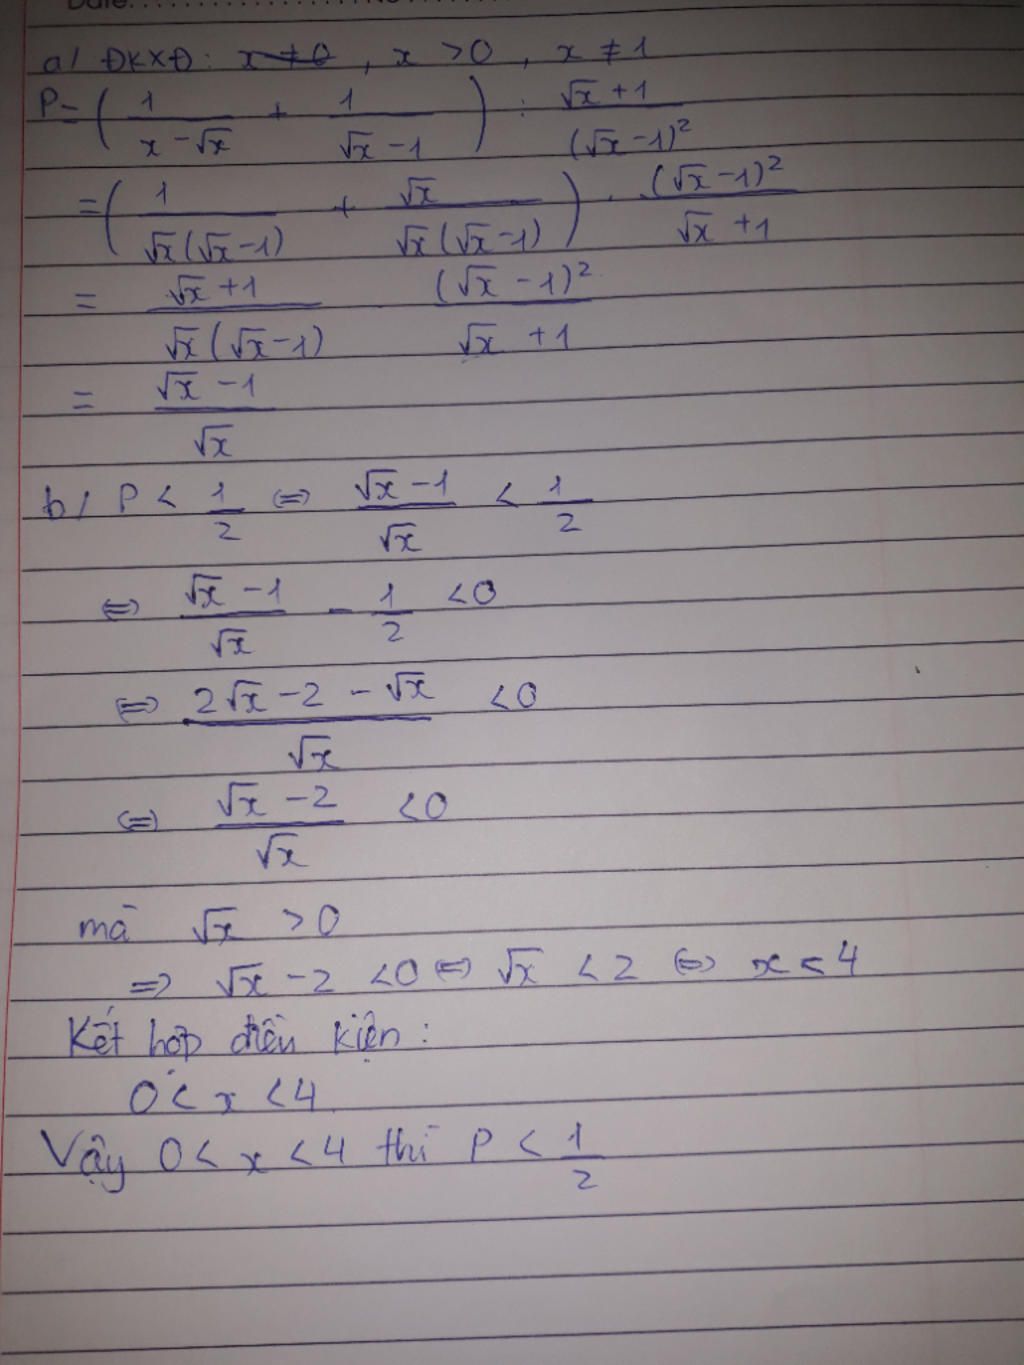 Date:
a/ ĐKXĐ: x ≠ 0, x > 0, x ≠ 1
P = ( 1/(x - √x) + 1/(√x - 1) ) : (√x + 1)/(√x - 1)²
= ( 1/(√x(√x - 1)) + √x/(√x(√x - 1)) ) . (√x - 1)²/(√x + 1)
= (√x + 1)/(√x(√x - 1)) (√x - 1)²/(√x + 1)
= (√x - 1)/√x
b/ P < 1/2 ⇔ (√x - 1)/√x < 1/2
⇔ (√x - 1)/√x - 1/2 < 0
⇔ (2√x - 2 - √x)/√x < 0
⇔ (√x - 2)/√x < 0
mà √x > 0
⇒ √x - 2 < 0 ⇔ √x < 2 ⇔ x < 4
Kết hợp điều kiện:
0 < x < 4
Vậy 0 < x < 4 thì P < 1/2